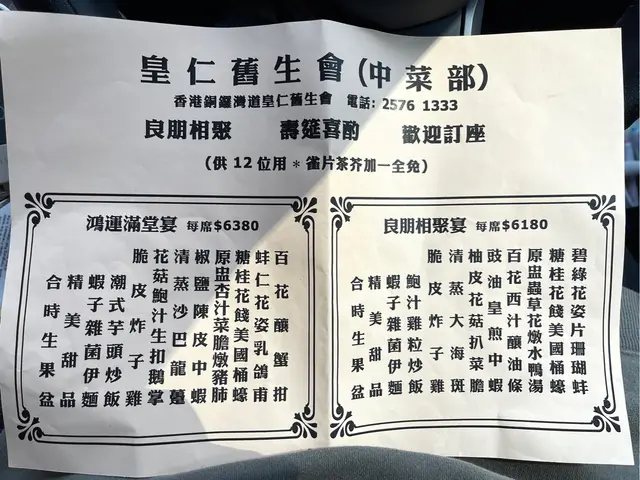 皇仁舊生會(中菜部)
香港銅鑼灣道皇仁舊生會 電話: 2576 1333
良朋相聚 壽筵喜酌 歡迎訂座
(供 12 位用 * 雀片茶芥加一全免)
鴻運滿堂宴 每席$6380
百花釀蟹拑
蚌仁花姿乳鴿甫
糖桂花餞美國桶蠔
原盅杏汁菜膽燉豬肺
椒鹽陳皮中蝦
清蒸沙巴龍躉
花菇鮑汁生扣鵝掌
脆皮炸子雞
潮式芋頭炒飯
蝦子雜菌伊麵
精美甜品
合時生果盆
良朋相聚宴 每席$6180
碧綠花姿片珊瑚蚌
糖桂花餞美國桶蠔
原盅蟲草花燉水鴨湯
百花西汁釀油條
豉油皇煎中蝦
柚皮花菇扒菜膽
清蒸大海斑
脆皮炸子雞
鮑汁雞粒炒飯
蝦子雜菌伊麵
精美甜品
合時生果盆